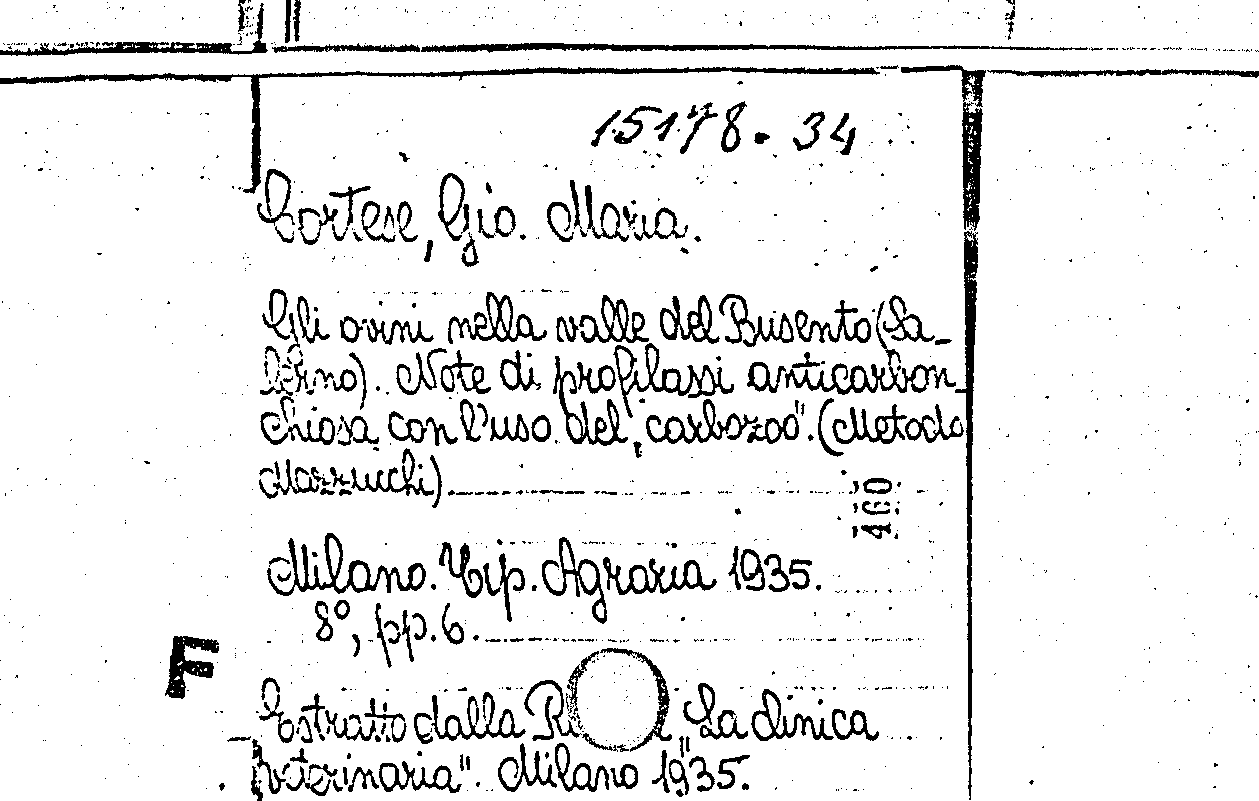 15178.34
Cortese, Gio. Maria.
Gli ovini nella valle del Busento (Sa_
lerno). Note di profilassi anticarbon_
chiosa con l'uso del „carbozoo". (Metodo
Mazzucchi)
460
Milano. Tip. Agraria 1935.
8°, pp. 6.
F
Estratto dalla „La clinica
veterinaria". Milano 1935.